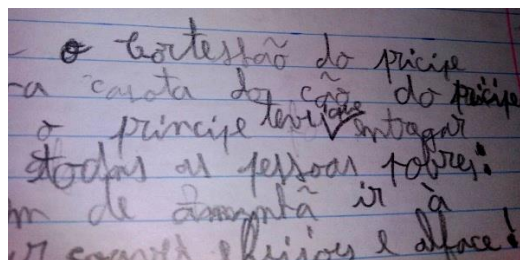 - o Cortessão do pricipe
-a casota do cão do pricipe
o principe teria que entragar
todas as pessoas pobres:
de amanhã ir à
e alface!